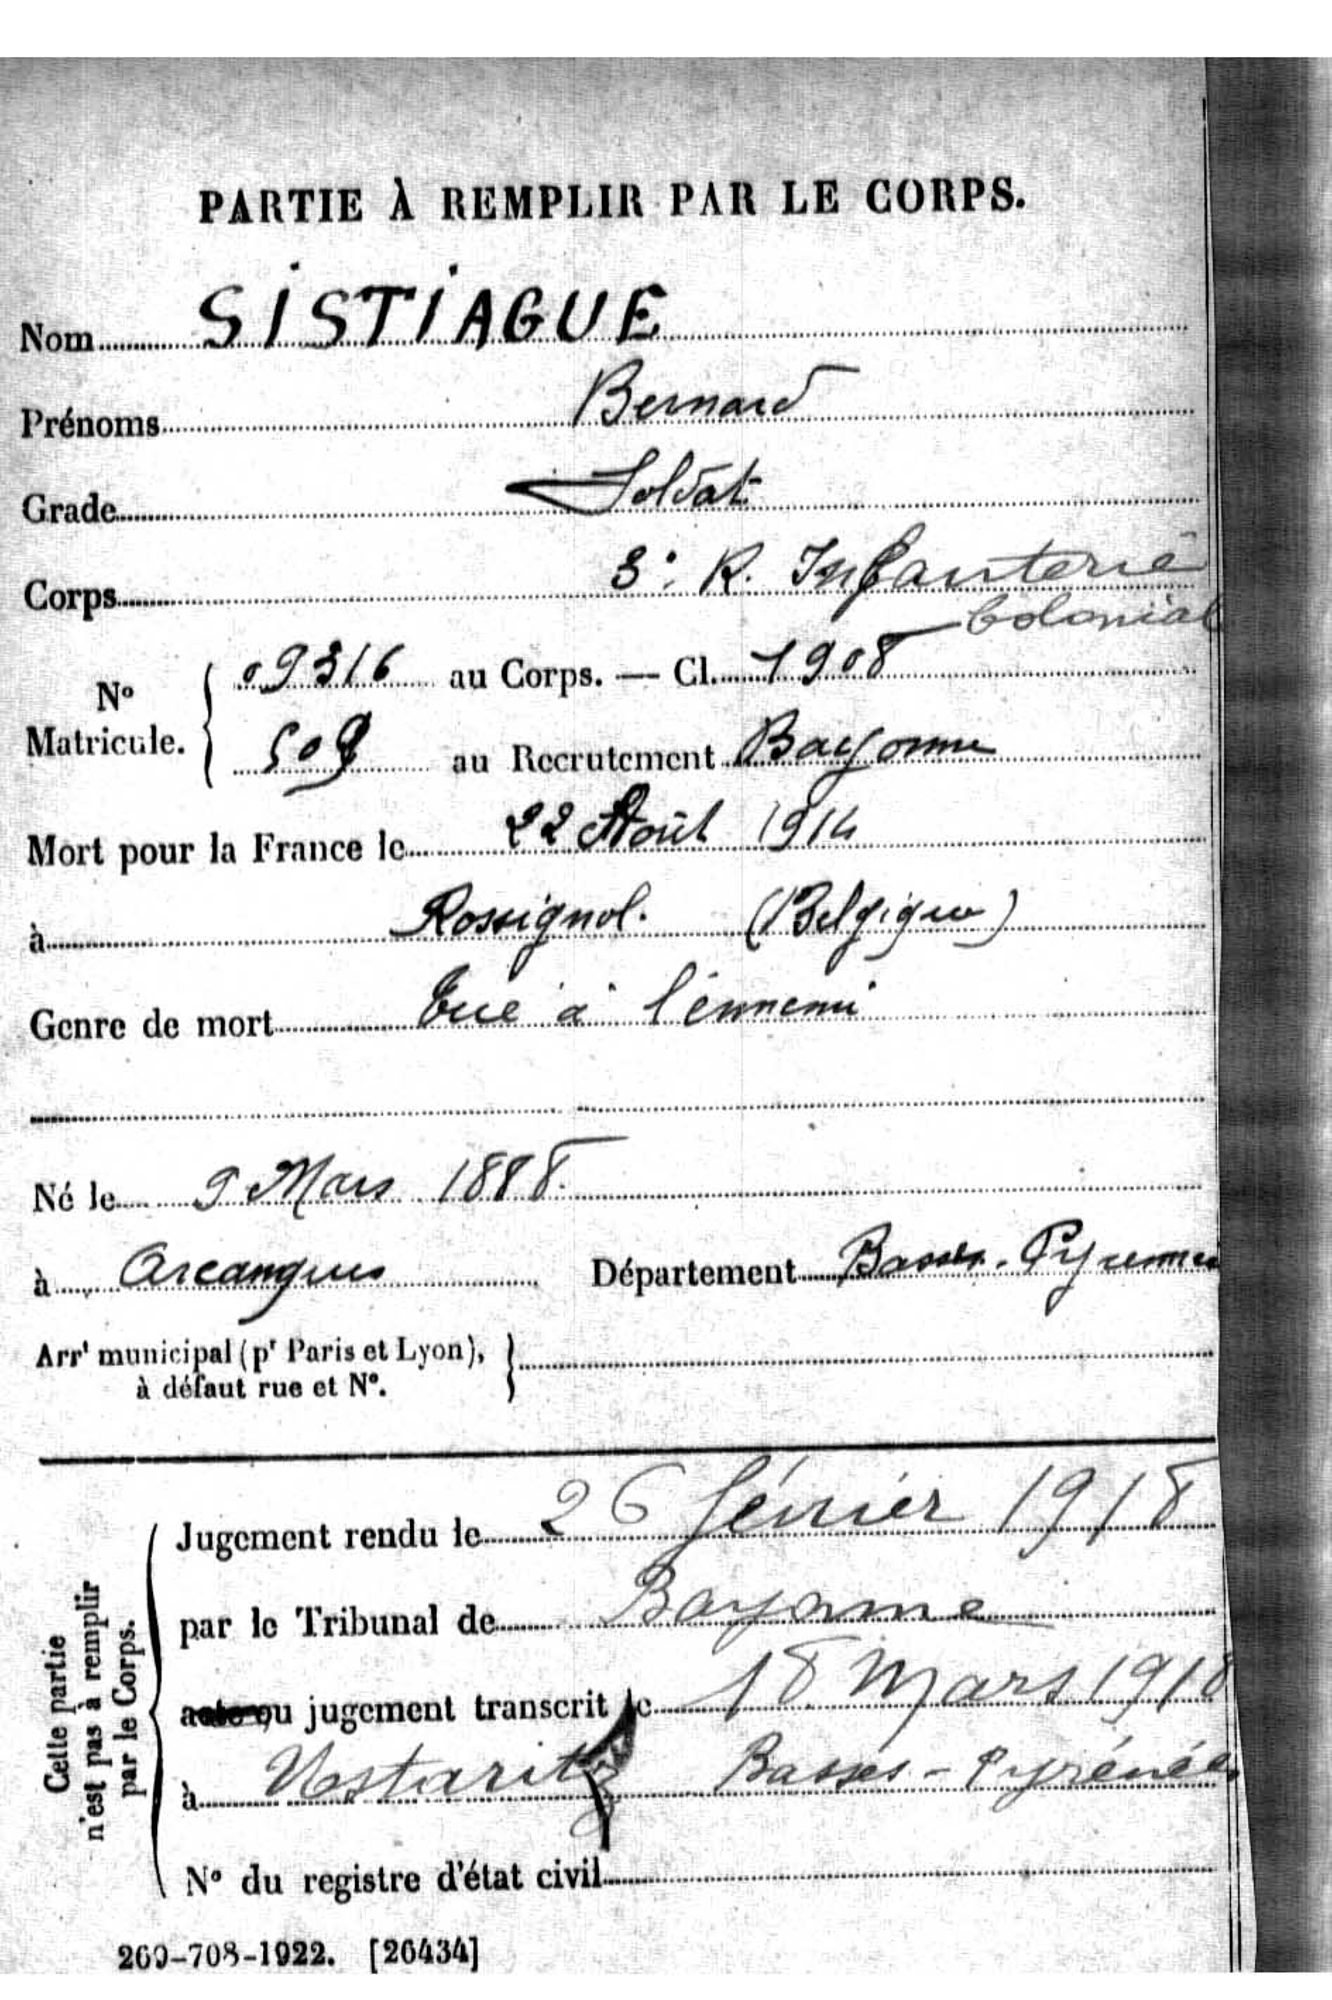 PARTIE À REMPLIR PAR LE CORPS.
Nom SISTIAGUE
Prénoms Bernard
Grade Soldat
Corps 3e R. Infanterie
Colonial
No Matricule. 09316 au Corps. — Cl. 1908
509 au Recrutement Bayonne
Mort pour la France le 22 Août 1914
à Rossignol. (Belgique)
Genre de mort Tué à l'ennemi
Né le 9 Mars 1888.
à Arcangues Département Basses-Pyrénées
Arrt municipal (pr Paris et Lyon),
à défaut rue et No.
Cette partie
n'est pas à remplir
par le Corps.
Jugement rendu le 26 février 1918
par le Tribunal de Bayonne
acte ou jugement transcrit le 18 Mars 1918
à Ustaritz Basses-Pyrénées
No du registre d'état civil
269-708-1922. [26434]